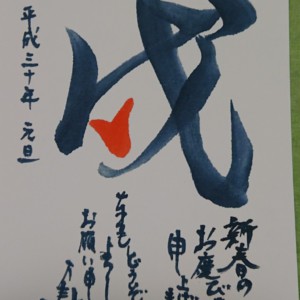 戌
新春の
お慶び
申し上
本年もどうぞ
よろし
お願い申し
平成三十年 元旦